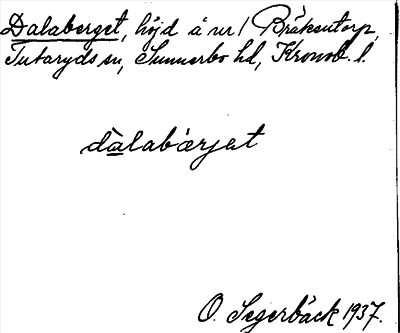 Dalaberget, höjd å nr 1 Bråkentorp,
Tutaryds sn, Sunnerbo hd, Kronob. l.
dàlabærjet
O. Segerbäck 1937.